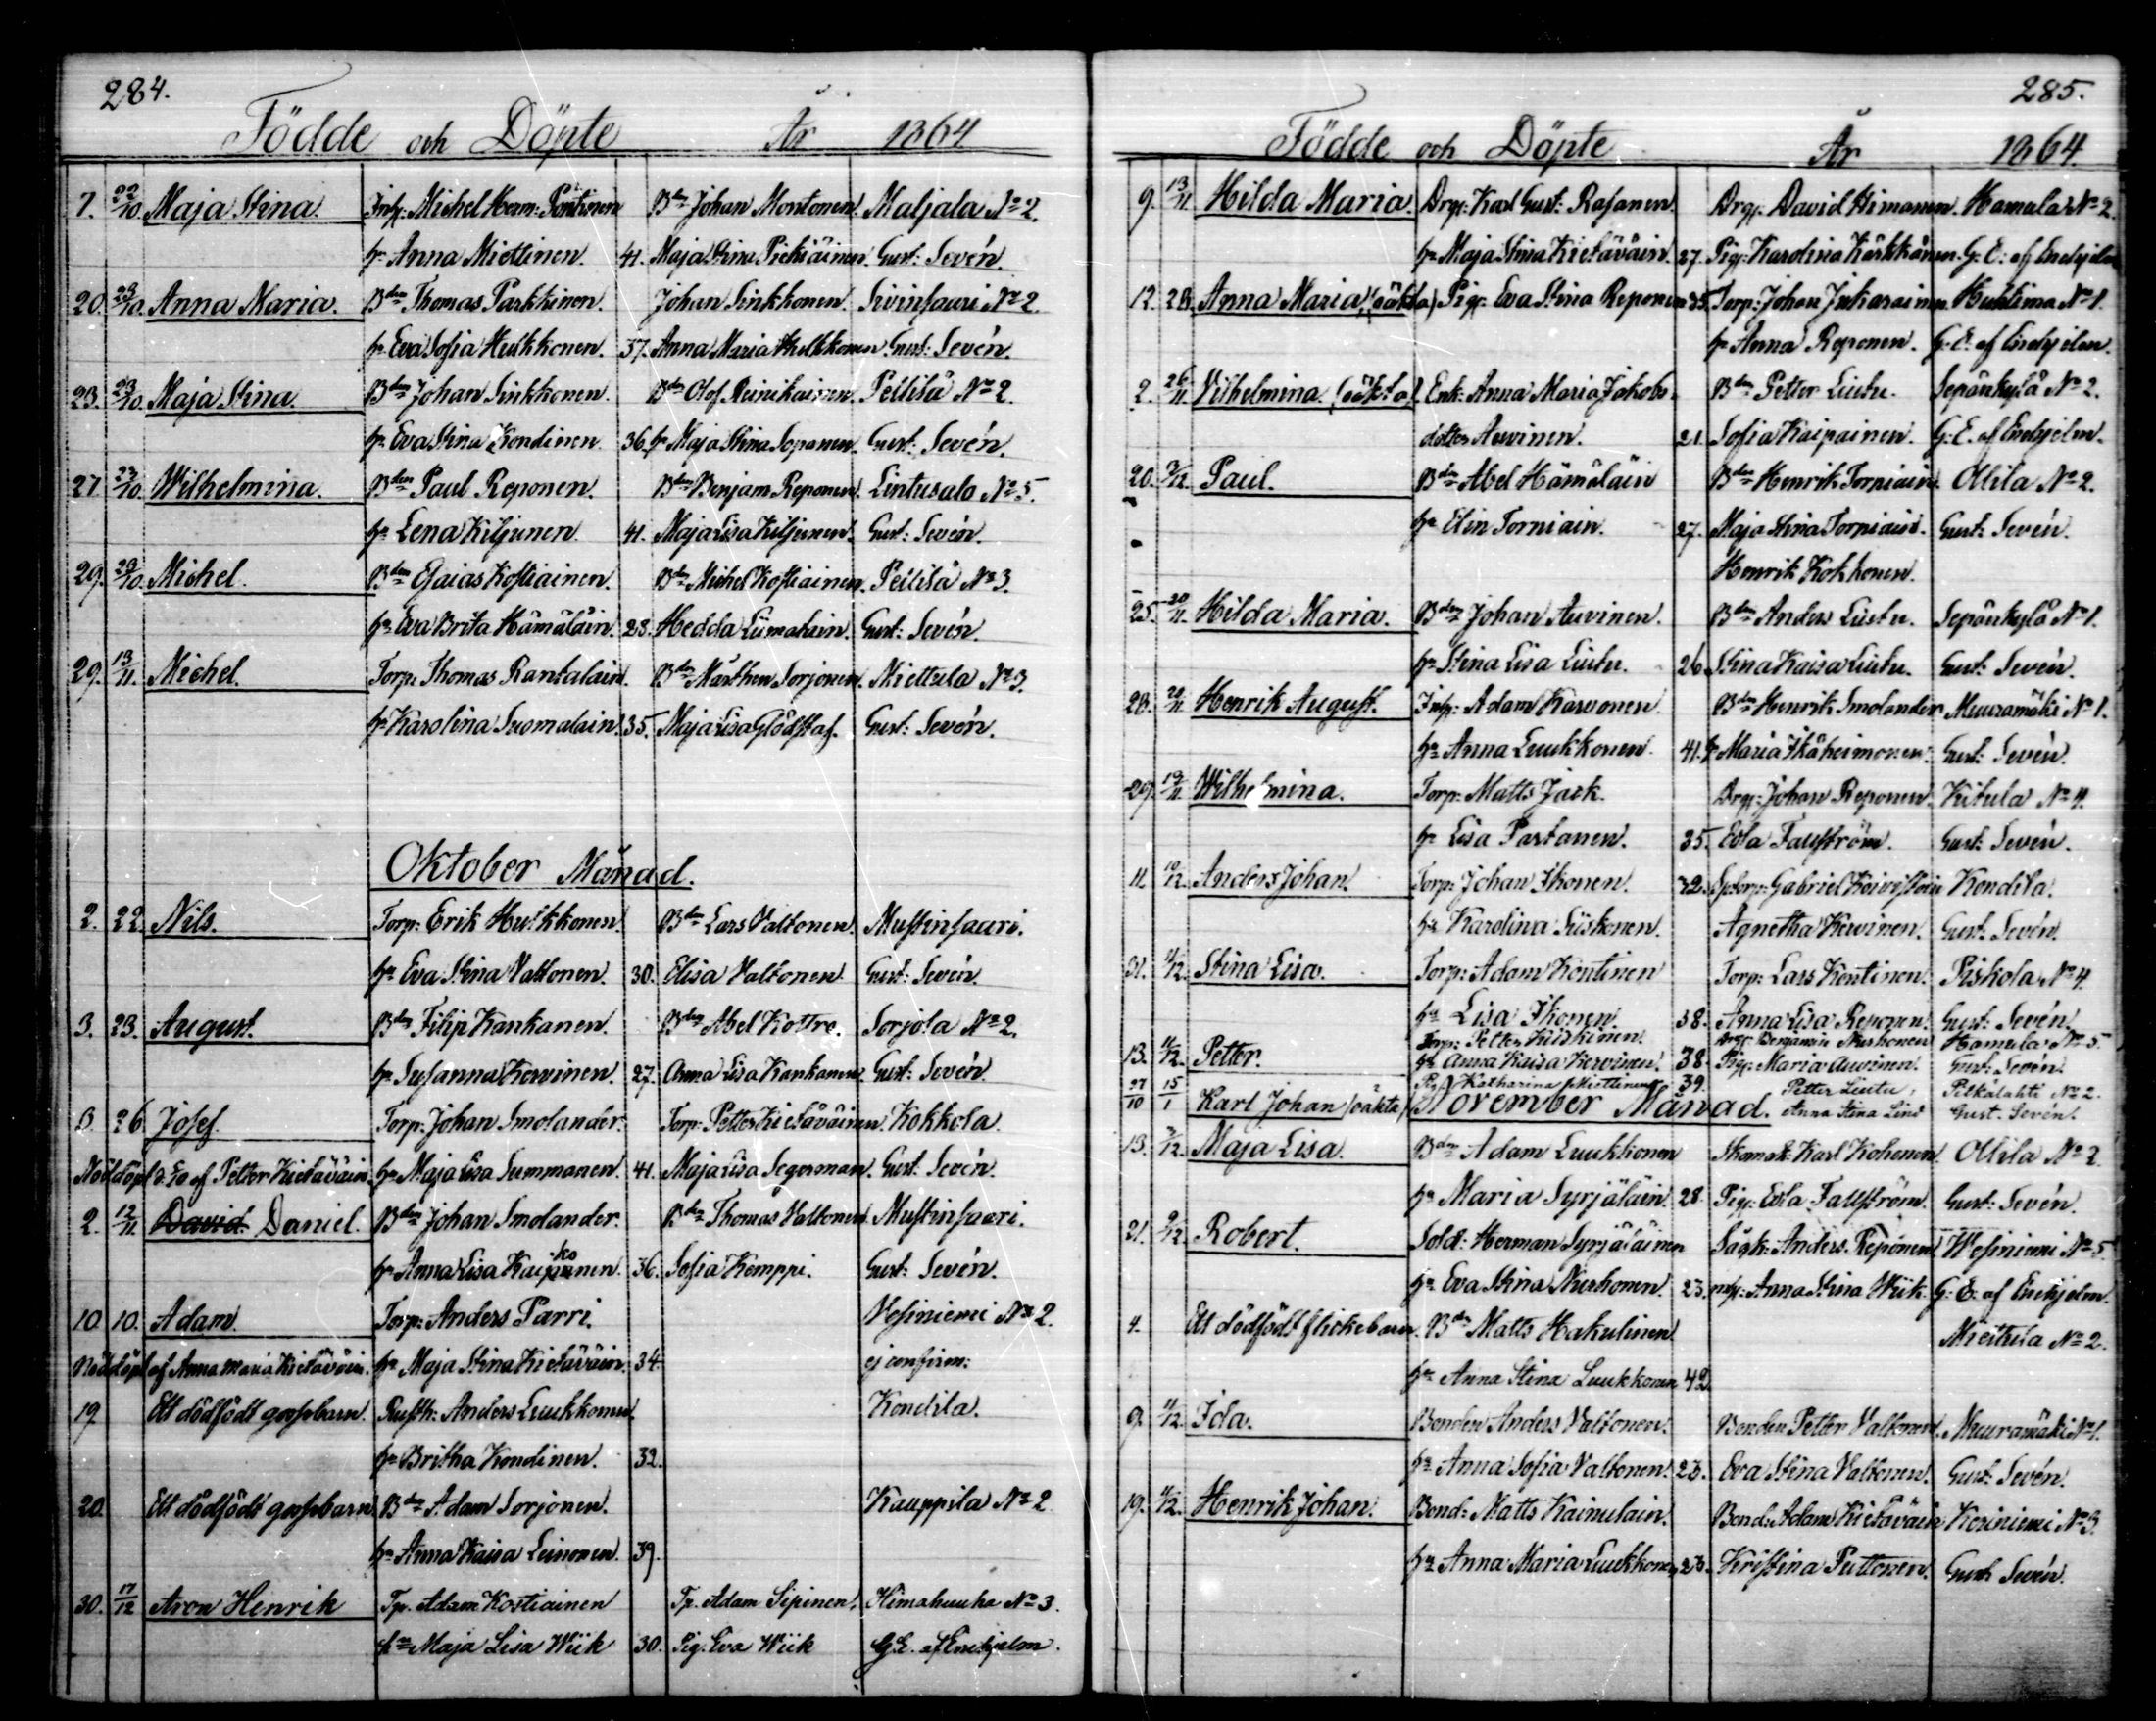 284.
Födde och Döpte År 1864
7. 22/10. Maja Stina. Insp: Michel Herm: Pöntinen Bdn Johan Montonen. Maljala No 2.
hu Anna Miettinen. 41. Maja Stina Pickiäinen. Gust: Sevén.
20. 23/10. Anna Maria. Bdn Thomas Parkkinen. Johan Sinkkonen. Sivinsauri No 2.
hu Eva Sofia Heikkonen. 37. Anna Maria Gust: Sevén.
23. 23/10. Maja Stina. Bdn Johan Sinkkonen. Bdn Olof Reinikainen. Peltilä No 2.
hu Eva Stina Kondinen 36. hu Maja Stina Sopanen. Gust: Sevén.
27 23/10. Wilhelmina. Bdn Paul Reponen. Bdn Benjam Reponen. Lintusalo No 5.
hu Lena Kiljunen. 41. Maja Lisa Kiljunen. Gust: Sevén.
29. 29/10. Michel. Bdn Esaias Kostiainen. Bdn Michel Kostiainen. Peltilä No 3.
hu Eva Brita Hämäläin. 28. Hedda Liimatain. Gust: Sevén.
29. 13/11. Michel. Torp: Thomas Rantalain. Bdn Mårthen Sorjonen. Miettula No 3.
hu Karolina Suomalain. 35. Maja Lisa Glödstaf. Gust: Sevén.
Oktober Månad.
2. 22. Nils. Torp: Erik Huskkonen. Bdn Lars Valtonen. Mustinsaari.
hu Eva Stina Valtonen. 30. Elisa Valtonen Gust: Sevén.
3. 23. August. Bdn Filip Kankanen. Bdn Abel Kottre. Sorjola No 2.
hu Susanna Kervinen. 27. Anna Lisa Kankanen. Gust: Sevén.
8. 26 Josef. Torp: Johan Smolander. Torp: Petter Kietäväinen. Kokkola.
Nöddöpt af Petter Kietäväin. hu Maja Lisa Summanen. 41. Maja Lisa Segerman. Gust: Sevén.
2. 12/11. David. Daniel. Bdn Johan Smolander. Bdn Thomas Valtonen Mustinsaari.
hu Anna Lisa 36. Sofia Kemppi. Gust: Sevén.
10. 10. Adam. Torp: Anders Parri. Vesiniemi No 2.
Nöddöpt af Anna Maria Kietäväin. hu Maja Stina Kietäväin. 34. ej confirm:
19 Ett dödfödt gossebarn. Rusth: Anders Luukkonen. Kondila.
hu Britha Kondinen. 32.
20. Ett dödfödt gossebarn. Bdn Adam Sorjonen. Kauppila No 2
hu Anna Kaisa Leinonen. 39.
30. 17/12 Aron Henrik Tp. Adam Kostiainen Tp. Adam Sipinen. Himahuuha No 3.
hu Maja Lisa Wiik 30. Pig. Eva Wiik G.E. af Enehjelm.
285.
Födde och Döpte År 1864.
9. 13/11. Hilda Maria. Drg: Karl Gust: Räsänen. Drg: David Himanen. Hamula No 2.
hu Maja Stina Kietäväin. 27. Pig: Karolina Kärkkänen. G: E: af Enehjelm
12. 28. Anna Maria, (oäkta) Pig: Eva Stina Reponen 35. Torp: Johan Jukarainen. Huhtima No 1.
hu Anna Reponen. G: E: af Enehjelm.
2. 26/11. Vilhelmina. (oäkta). Enk: Anna Maria Jakobs- Bdn Petter Liutu. Sepänkylä No 2.
dotter Auvinen. 21. Sofia Kaipainen. G: E. af Enehjelm.
20. 3/12. Paul. Bdn Abel Hämäläin Bdn Henrik Torniain. Ollila No 2.
hu Elin Torniain. 27. Maja Stina Torniain. Gust: Sevén.
Henrik Kokkonen.
25. 20/11. Hilda Maria. Bdn Johan Auvinen. Bdn Anders Liutu. Sepänkylä No 1.
hu Stina Lisa Liutu. 26 Stina Kaisa Liutu. Gust: Sevén.
28. 29/11. Henrik August. Insp: Adam Karvonen. Bdn Henrik Smolander Muuramäki No 1.
hu Anna Luukkonen. 41. hu Maria Ikäheimonen. Gust: Sevén.
29. 19/11. Wilhelmina. Torp: Matts Jack. Drg: Johan Reponen. Kitula No 4.
hu Lisa Partanen. 35. Edla Fallström. Gust: Sevén.
11. 10/12. Anders Johan. Torp: Johan Ikonen. 32. Gabriel Koivistoin Kondila.
hu Karolina Siiskonen. Agnetha Kervinen. Gust: Sevén.
31. 11/12. Stina Lisa. Torp: Adam Kontinen Torp: Lars Kontinen. Piskola No 4.
hu Lisa Ikonen. 38. Anna Lisa Reponen. Gust: Sevén.
13. 11/12. Petter. Torp: Petter Kiiskinen. Drg: Benjamin Nuikonen Hamula No 5.
hu Anna Kaisa Kervinen. 38. Pig: Maria Auvinen. Gust: Sevén.
27/10 15/1 Karl Johan (oäkta) Pig. Katharina Miettinen 39. Petter Liutu, Pelkälahti No 2.
November Månad. Anna Stina Lind Gust. Sevén.
13. 3/12. Maja Lisa. Bdn Adam Luukkonen Skomak: Karl Kohonen. Ollila No 2.
hu Maria Syrjäläin. 28. Pig: Edla Fallström. Gust: Sevén.
21. 9/12. Robert. Sold: Herman Syrjäläinen Sågk: Anders Reponen Vesiniemi No 5.
hu Eva Stina Nuikonen. 23. Anna Stina Wiik. G: E: af Enehjelm.
4. Ett dödfödt flickebarn. Bdn Matts Hakulinen. Miettula No 2.
hu Anna Stina Luukkonen 42.
9. 11/12. Ida. Bonden Anders Valtonen. Bonden Petter Valtonen. Muuramäki No 1.
hu Anna Sofia Valtonen. 23. Eva Stina Valtonen. Gust: Sevén.
19. 11/12. Henrik Johan. Bond: Matts Kainulain. Bond: Adam Kietäväin Koriniemi No 3.
hu Anna Maria Luukkonen. 23. Kristina Puttonen. Gust: Sevén.